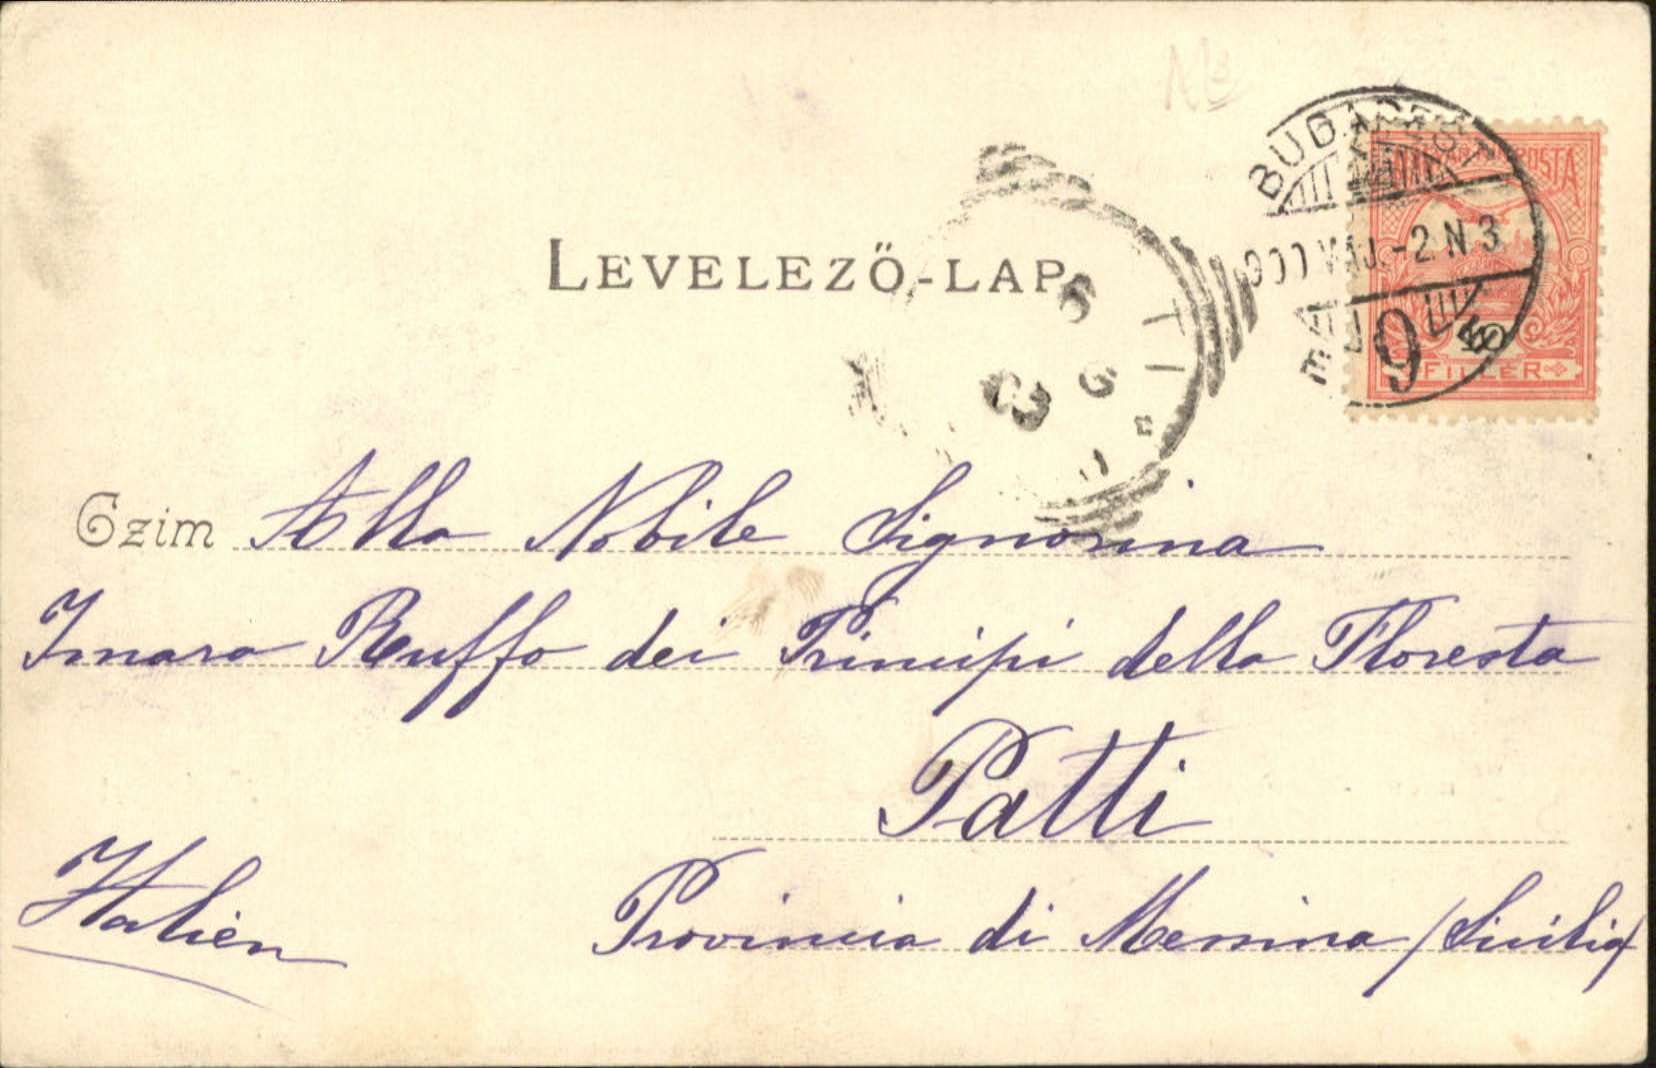 LEVELEZŐ-LAP
BUDAPEST
MAGYAR POSTA
900 MÁJ. -2 N. 3
9
10
FILLÉR
TTI
Czim Alla Nobile Signorina
Imara Ruffo dei Principi della Floresta
Patti
Italien Provincia di Messina (Sicilia)